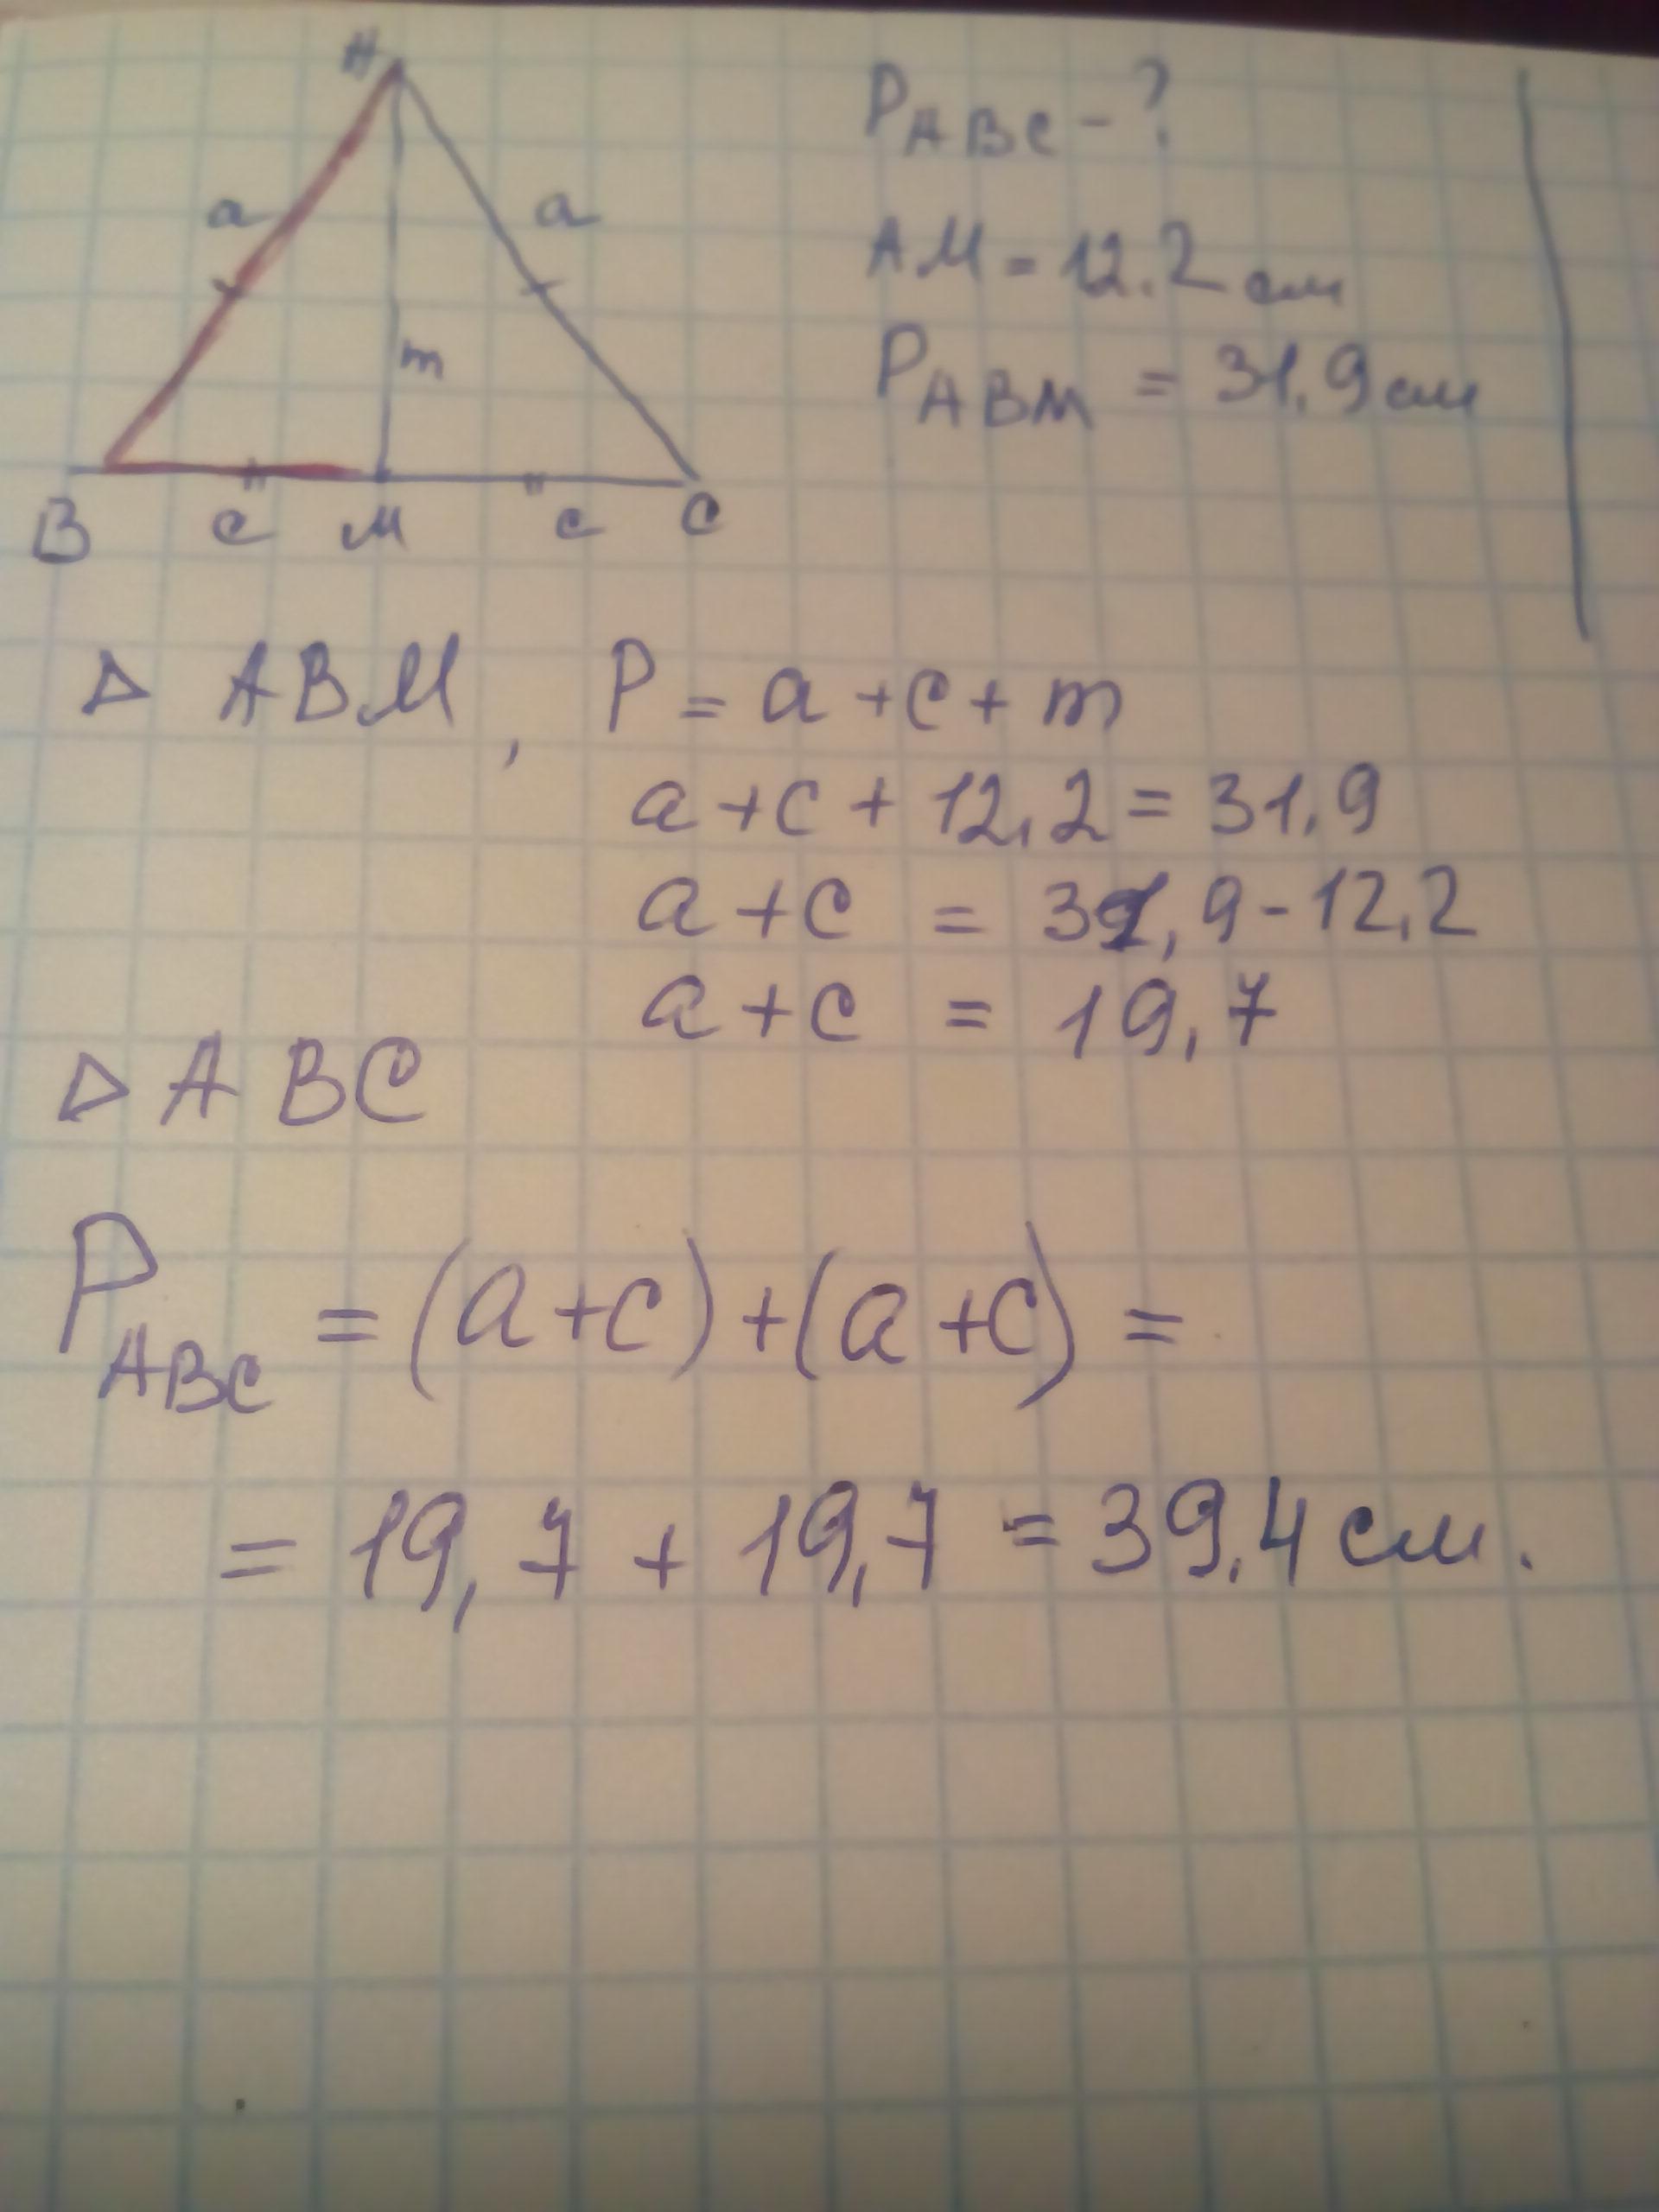 A
a a
m
B c M c C
P ABC - ?
AM = 12.2 см
P ABM = 31,9 см
△ ABM, P = a + c + m
a + c + 12,2 = 31,9
a + c = 31,9 - 12,2
a + c = 19,7
△ ABC
P ABC = (a + c) + (a + c) =
= 19,7 + 19,7 = 39,4 см.